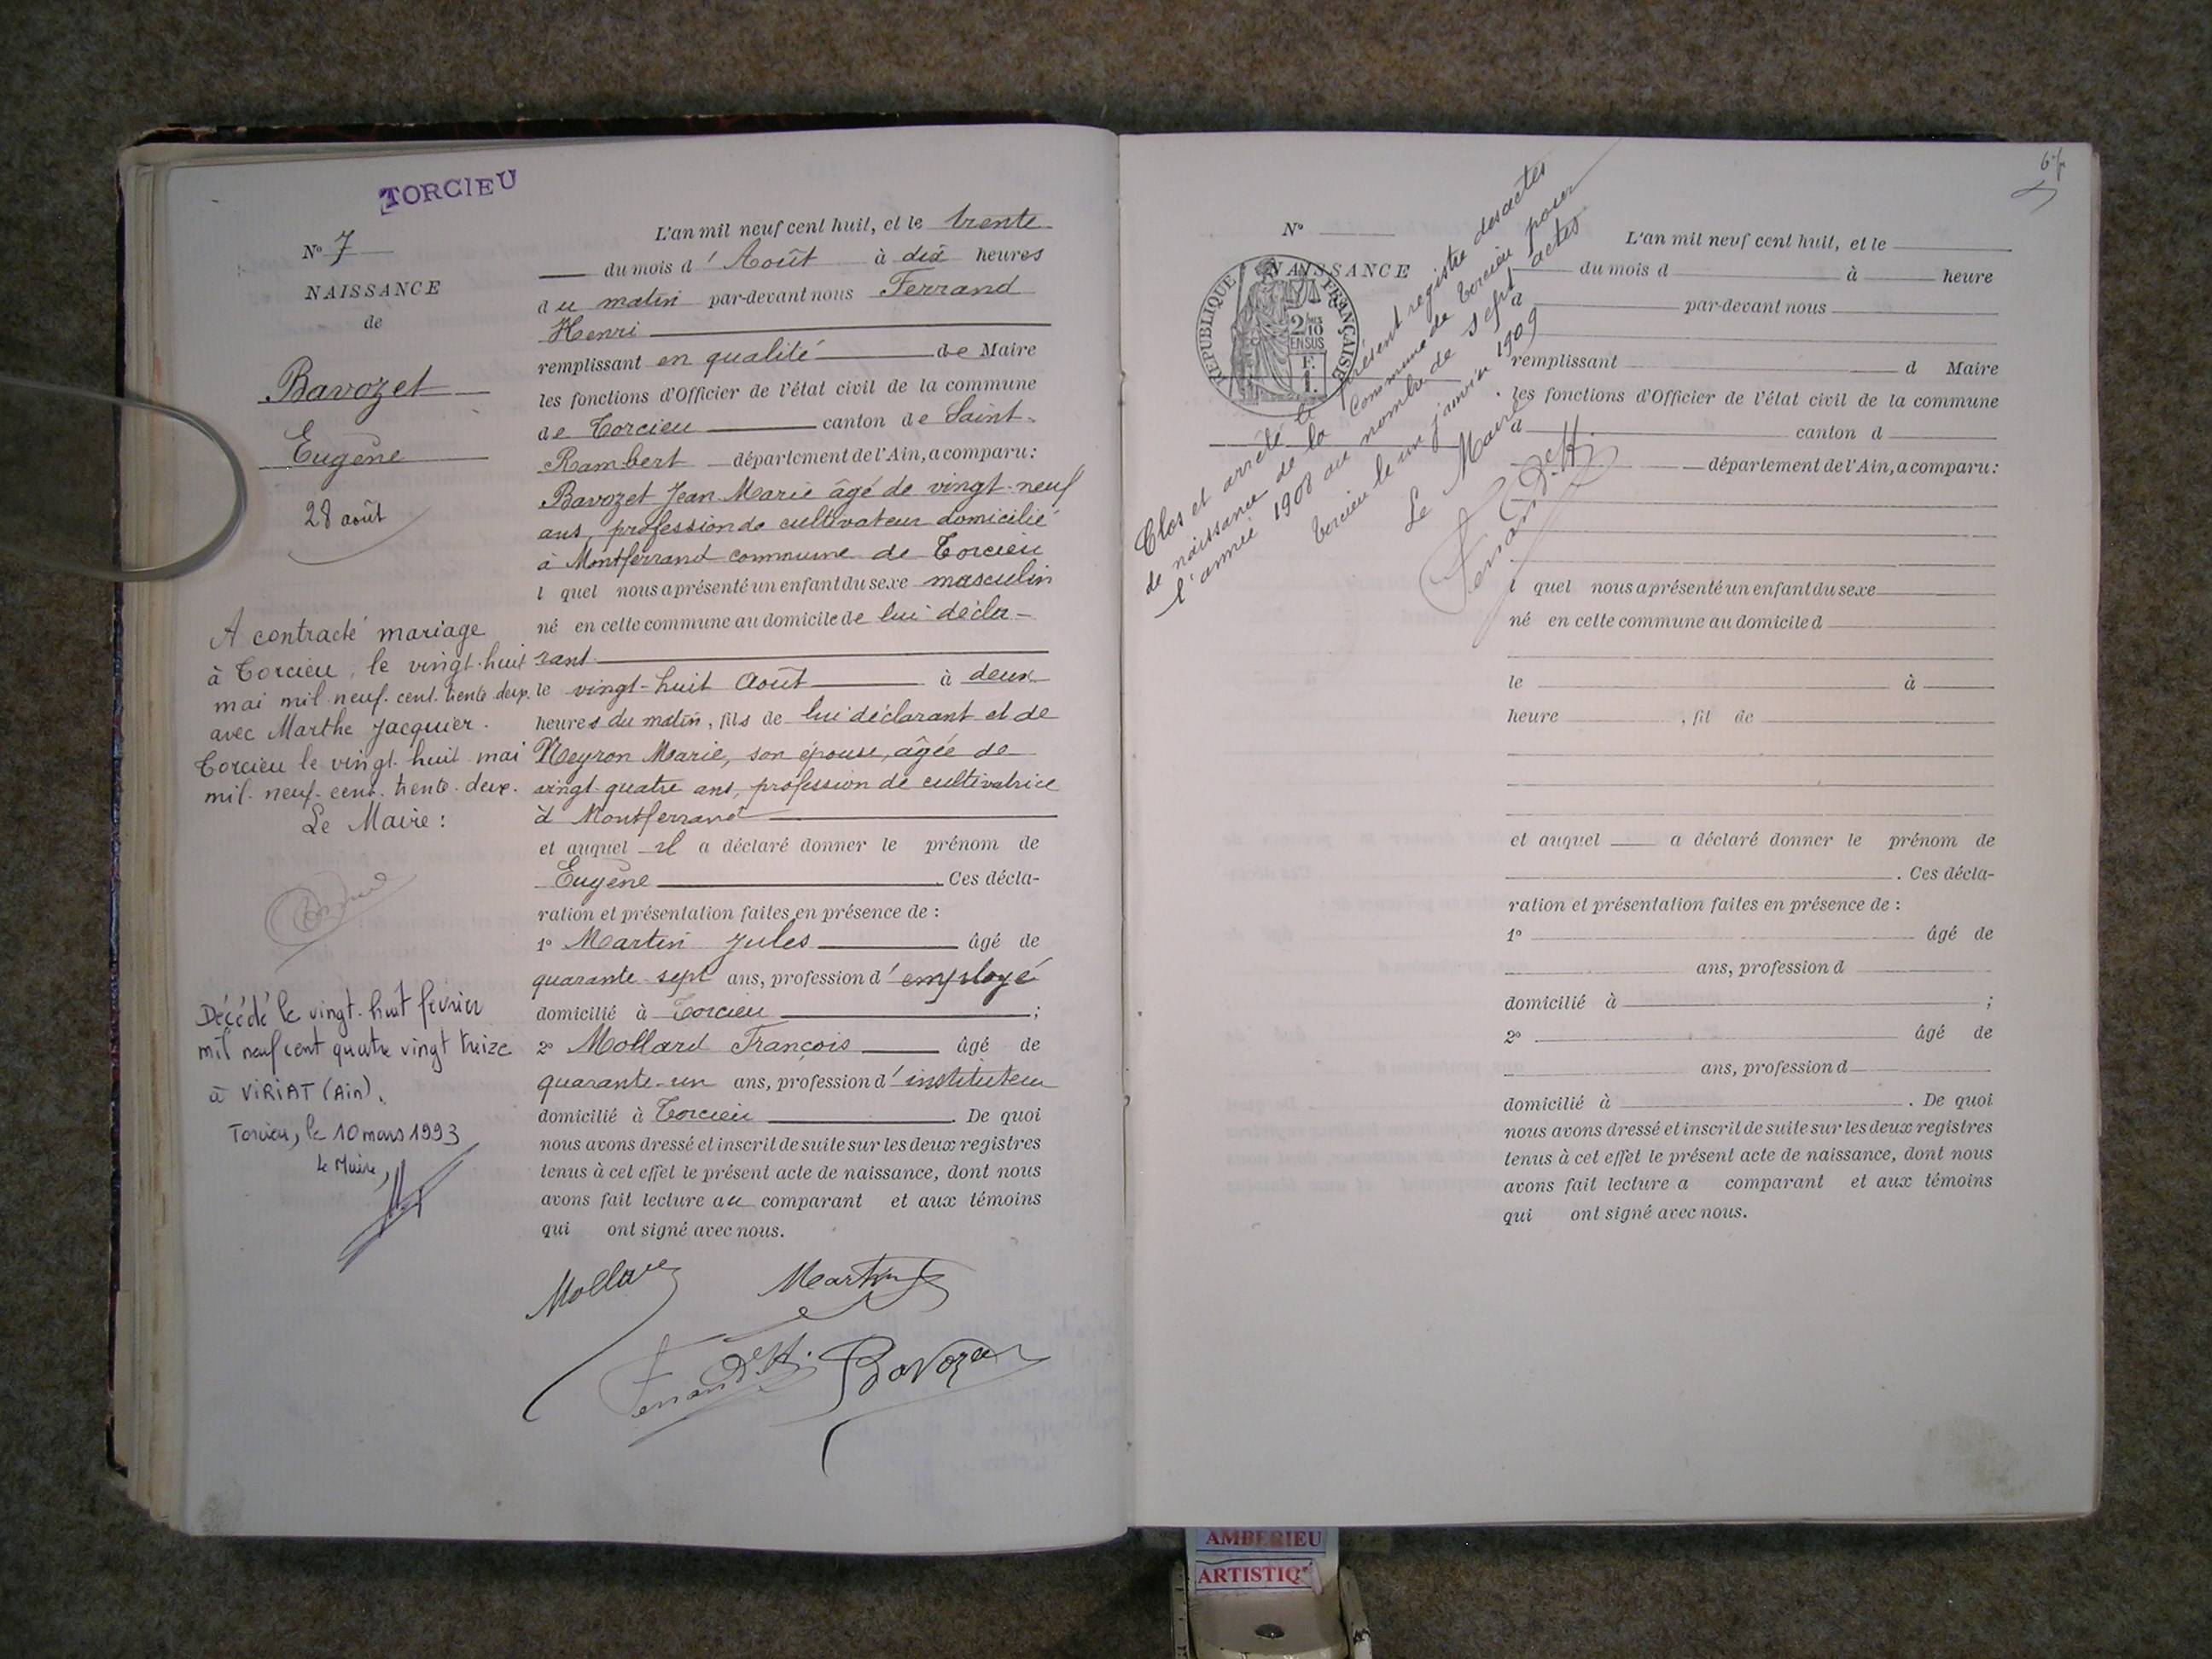 TORCIEU
N° 7
NAISSANCE
de
Bavozet
Eugène
28 août
A contracté mariage
à Torcieu, le vingt-huit
mai mil-neuf-cent-trente-deux
avec Marthe Jacquier.
Torcieu le vingt-huit mai
mil-neuf-cent-trente-deux.
Le Maire :
Décédé le vingt-huit février
mil neuf cent quatre vingt treize
à VIRIAT (Ain).
Torcieu, le 10 mars 1993
Le Maire,
L'an mil neuf cent huit, et le trente
du mois d'Août à dix heures
du matin par-devant nous Ferrand
Henri
remplissant en qualité de Maire
les fonctions d'Officier de l'état civil de la commune
de Torcieu canton de Saint-
Rambert département de l'Ain, a comparu :
Bavozet Jean Marie âgé de vingt-neuf
ans, profession de cultivateur domicilié
à Montferrand commune de Torcieu
l quel nous a présenté un enfant du sexe masculin
né en cette commune au domicile de lui décla-
rant
le vingt-huit Août à deux
heures du matin, fils de lui déclarant et de
Neyron Marie, son épouse, âgée de
vingt-quatre ans, profession de cultivatrice
à Montferrand
et auquel il a déclaré donner le prénom de
Eugène. Ces décla-
ration et présentation faites en présence de :
1° Martin Jules âgé de
quarante-sept ans, profession d'employé
domicilié à Torcieu ;
2° Mollard François âgé de
quarante-un ans, profession d'instituteur
domicilié à Torcieu. De quoi
nous avons dressé et inscrit de suite sur les deux registres
tenus à cet effet le présent acte de naissance, dont nous
avons fait lecture au comparant et aux témoins
qui ont signé avec nous.
Mollard Martin
Ferrand Hri Bavozet
N°
NAISSANCE
RÉPUBLIQUE FRANÇAISE
2/10
EN SUS
F.
1.
Clos et arrêté le présent registre des actes
de naissance de la Commune de Torcieu pour
l'année 1908 au nombre de sept actes
Torcieu le un janvier 1909
Le Maire
Ferrand Hri
L'an mil neuf cent huit, et le
du mois d à heure
d par-devant nous
remplissant d Maire
les fonctions d'Officier de l'état civil de la commune
d canton d
département de l'Ain, a comparu :
l quel nous a présenté un enfant du sexe
né en cette commune au domicile d
le à
heure , fil de
et auquel a déclaré donner le prénom de
. Ces décla-
ration et présentation faites en présence de :
1° âgé de
ans, profession d
domicilié à ;
2° âgé de
ans, profession d
domicilié à . De quoi
nous avons dressé et inscrit de suite sur les deux registres
tenus à cet effet le présent acte de naissance, dont nous
avons fait lecture a comparant et aux témoins
qui ont signé avec nous.
AMBERIEU
ARTISTIQ